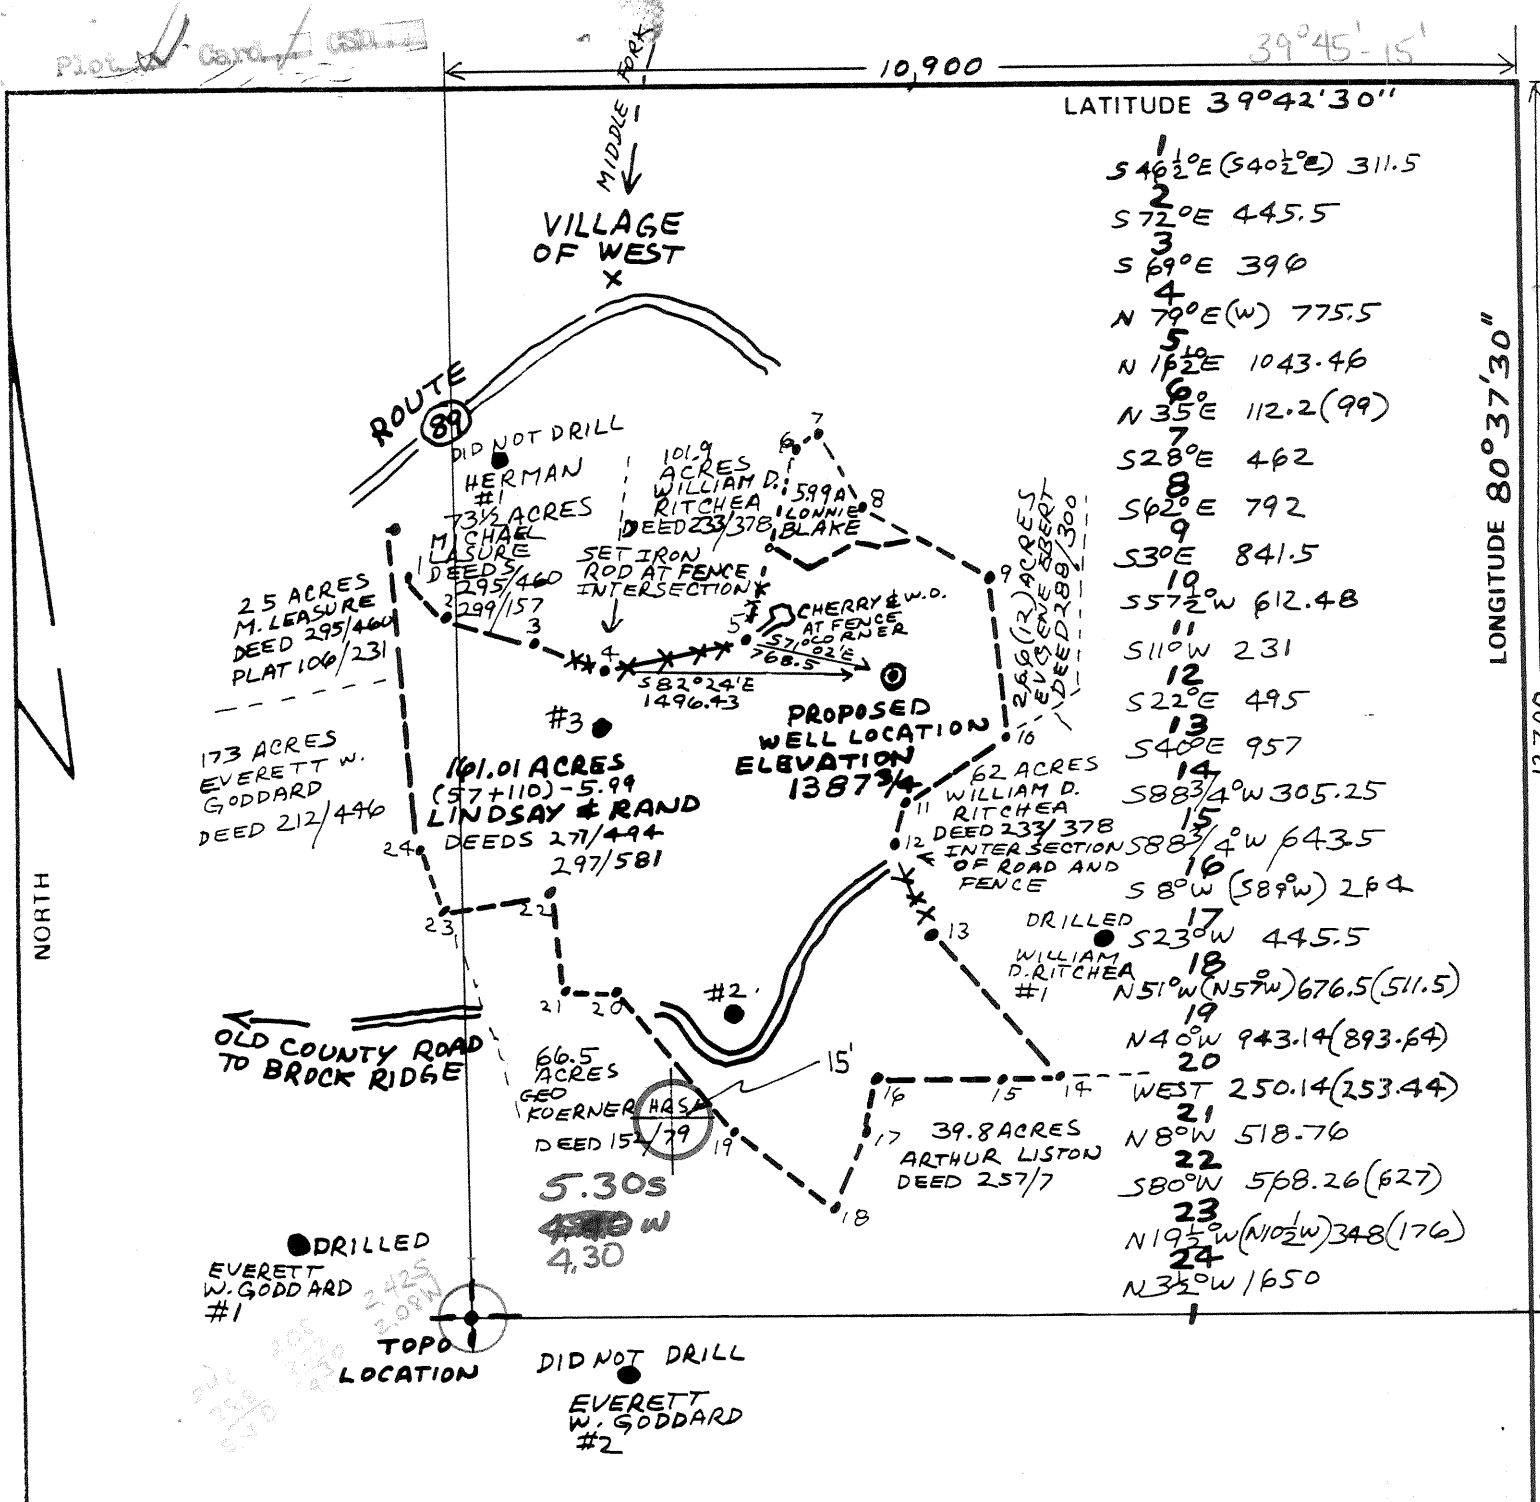 Plot Card
39°45'-15'
10,900
LATITUDE 39°42'30"
LONGITUDE 80°37'30"
MIDDLE FORK
VILLAGE
OF WEST
X
ROUTE
89
DID NOT DRILL
HERMAN
#1
73½ ACRES
MICHAEL
LASURE
DEEDS
295/460
299/157
101.9
ACRES
WILLIAM D.
RITCHEA
DEED 233/378
5.99 A
LONNIE
BLAKE
SET IRON
ROD AT FENCE
INTERSECTION
CHERRY & W.O.
AT FENCE
CORNER
S71°02'E
768.5
S82°24'E
1496.43
25 ACRES
M. LEASURE
DEED 295/460
PLAT 106/231
173 ACRES
EVERETT W.
GODDARD
DEED 212/446
#3
161.01 ACRES
(57+110)-5.99
LINDSAY & RAND
DEEDS 277/494
297/581
PROPOSED
WELL LOCATION
ELEVATION
1387 3/4
26.6(12) ACRES
EUGENE EBERT
DEED 288/300
62 ACRES
WILLIAM D.
RITCHEA
DEED 233/378
INTERSECTION
OF ROAD AND
FENCE
DRILLED
WILLIAM
D. RITCHEA
#1
#2
NORTH
OLD COUNTY ROAD
TO BROCK RIDGE
66.5
ACRES
GEO
KOERNER
DEED 152/79
HRS
15'
39.8 ACRES
ARTHUR LISTON
DEED 257/7
5.30s
W
4.30
DRILLED
EVERETT
W. GODDARD
#1
2.42S
2.08W
TOPO
LOCATION
DID NOT DRILL
EVERETT
W. GODDARD
#2
1
2
3
4
5
6
7
8
9
10
11
12
13
14
15
16
17
18
19
20
21
22
23
24
1
S46½°E (S40½°E) 311.5
2
S72°E 445.5
3
S69°E 396
4
N79°E(W) 775.5
5
N16½°E 1043.46
6
N35°E 112.2(99)
7
S28°E 462
8
S62°E 792
9
S3°E 841.5
10
S57½°W 612.48
11
S11°W 231
12
S22°E 495
13
S40°E 957
14
S88 3/4°W 305.25
15
S88 3/4°W 643.5
16
S8°W (S89°W) 264
17
S23°W 445.5
18
N51°W (N57°W) 676.5(511.5)
19
N40°W 943.14(893.64)
20
WEST 250.14(253.44)
21
N8°W 518.76
22
S80°W 568.26(627)
23
N19½°W (N10½W) 348(176)
24
N3½°W 1650
1